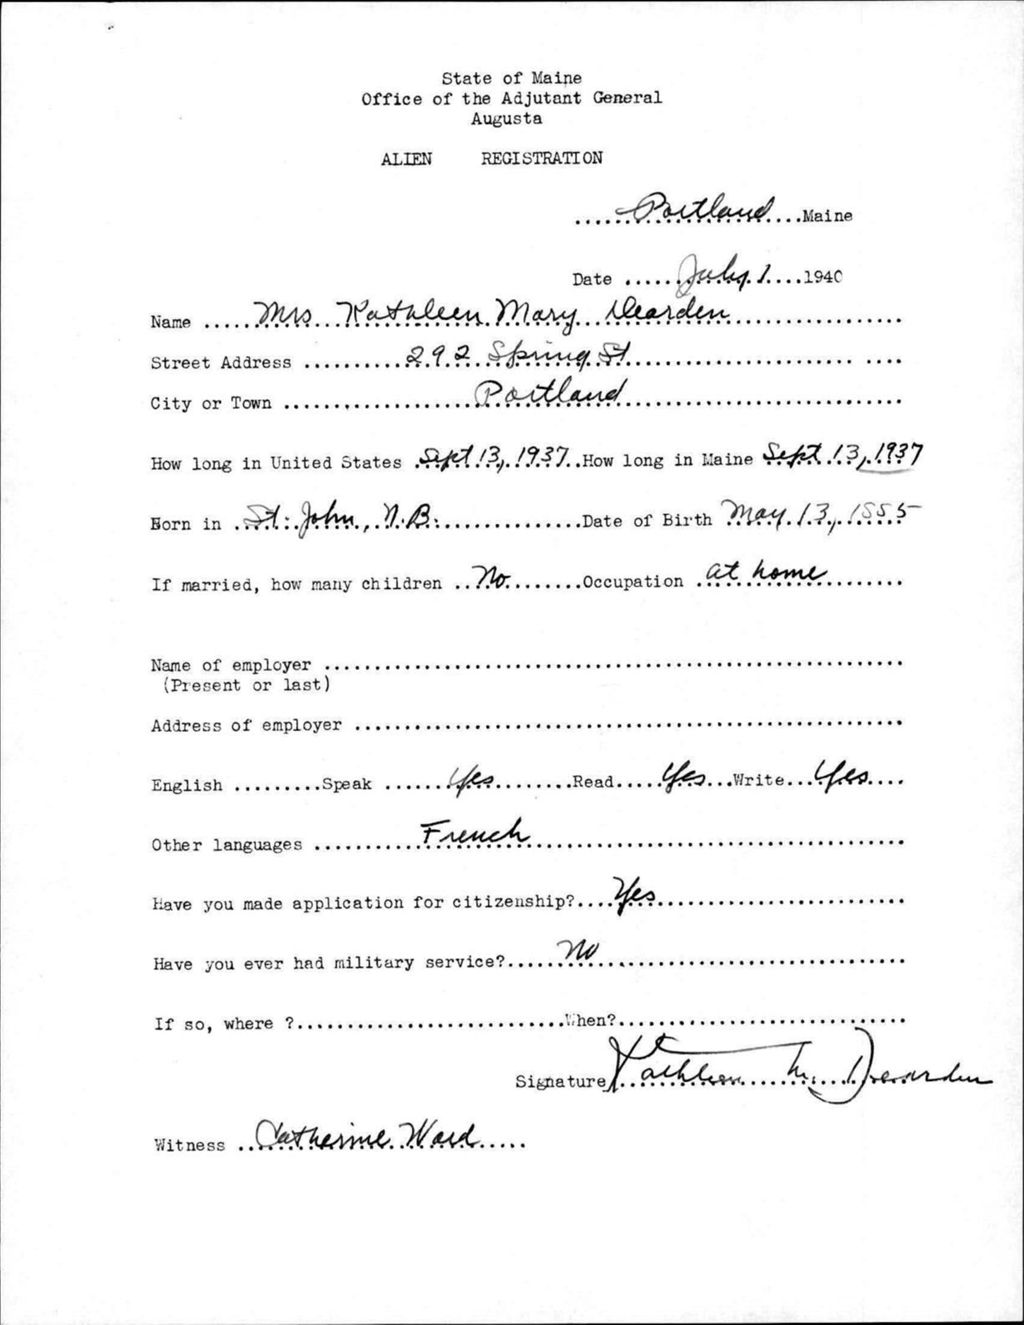 State of Maine
Office of the Adjutant General
Augusta
ALIEN REGISTRATION
Portland Maine
Date July 1 1940
Name Mrs Kathleen Mary Dearden
Street Address 292 Spring St
City or Town Portland
How long in United States Sept 13, 1937 How long in Maine Sept 13, 1937
Born in St. John, N.B. Date of Birth May 13,
If married, how many children No Occupation at home
Name of employer
(Present or last)
Address of employer
English Speak Yes Read Yes Write Yes
Other languages French
Have you made application for citizenship? Yes
Have you ever had military service? No
If so, where ? When?
Signature Kathleen M. Dearden
Witness Catherine Ward